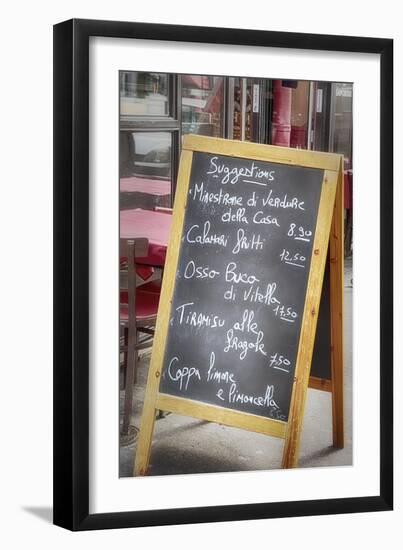 Suggestions
Minestrone di verdure
della Casa 8,90
Calamari fritti
12,50
Osso Buco
di Vitella
17,50
Tiramisu alle
fragole
7,50
Coppa limone
e limoncella